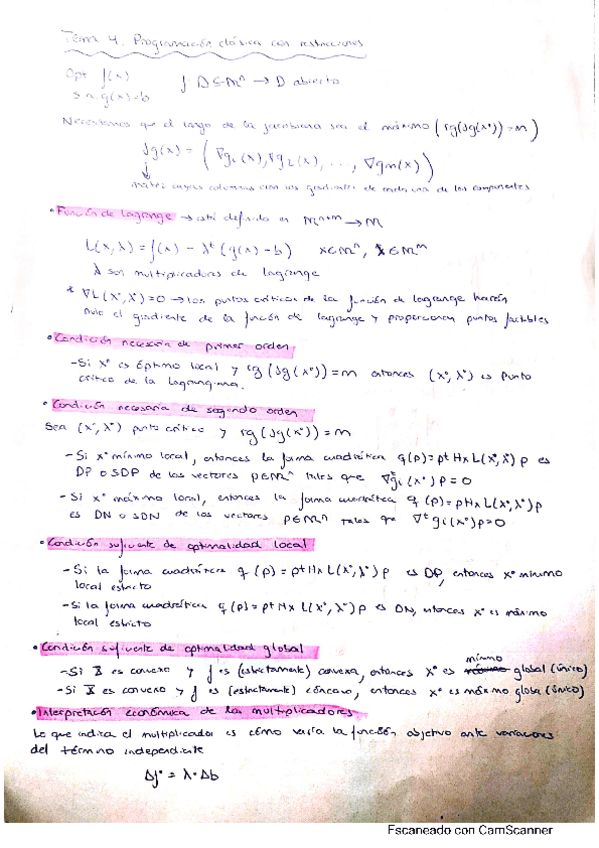 Tema 4. Programación clásica con restricciones
Opt f(x) f: D⊆ℝⁿ → D abierto
s.a. g(x)=b
Necesitamos que el rango de la jacobiana sea el máximo (rg(Jg(x°))=m)
Jg(x) = (∇g₁(x), ∇g₂(x), ..., ∇gm(x))
matriz cuyas columnas son los gradientes de cada una de las componentes
• Función de lagrange → está definido en ℝⁿ⁺ᵐ → ℝ
L(x,λ) = f(x) - λᵗ(g(x)-b) x∈ℝⁿ, λ∈ℝᵐ
λ son multiplicadores de lagrange
* ∇L(x°,λ°)=0 → los puntos críticos de la función de lagrange harán
nulo el gradiente de la función de lagrange y proporcionan puntos factibles
• Condición necesaria de primer orden
- Si x° es óptimo local y rg(Jg(x°))=m entonces (x°,λ°) es punto
crítico de la Lagrangiana.
• Condición necesaria de segundo orden
Sea (x°,λ°) punto crítico y rg(Jg(x°))=m
- Si x° mínimo local, entonces la forma cuadrática q(p)=pᵗHxL(x°,λ°)p es
DP o SDP de los vectores p∈ℝⁿ tales que ∇ᵗgi(x°)p=0
- Si x° máximo local, entonces la forma cuadrática q(p)=pHxL(x°,λ°)p
es DN o SDN de los vectores p∈ℝⁿ tales que ∇ᵗgi(x°)p=0
• Condición suficiente de optimalidad local
- Si la forma cuadrática q(p)=pᵗHxL(x°,λ°)p es DP, entonces x° mínimo
local estricto
- Si la forma cuadrática q(p)=pᵗHxL(x°,λ°)p es DN, entonces x° es máximo
local estricto
• Condición suficiente de optimalidad global
- Si X es convexo y f es (estrictamente) convexa, entonces x° es mínimo global (único)
- Si X es convexo y f es (estrictamente) cóncava, entonces x° es máximo global (único)
• Interpretación económica de los multiplicadores
Lo que indica el multiplicador es cómo varía la función objetivo ante variaciones
del término independiente
Δf° = λ·Δb
Escaneado con CamScanner